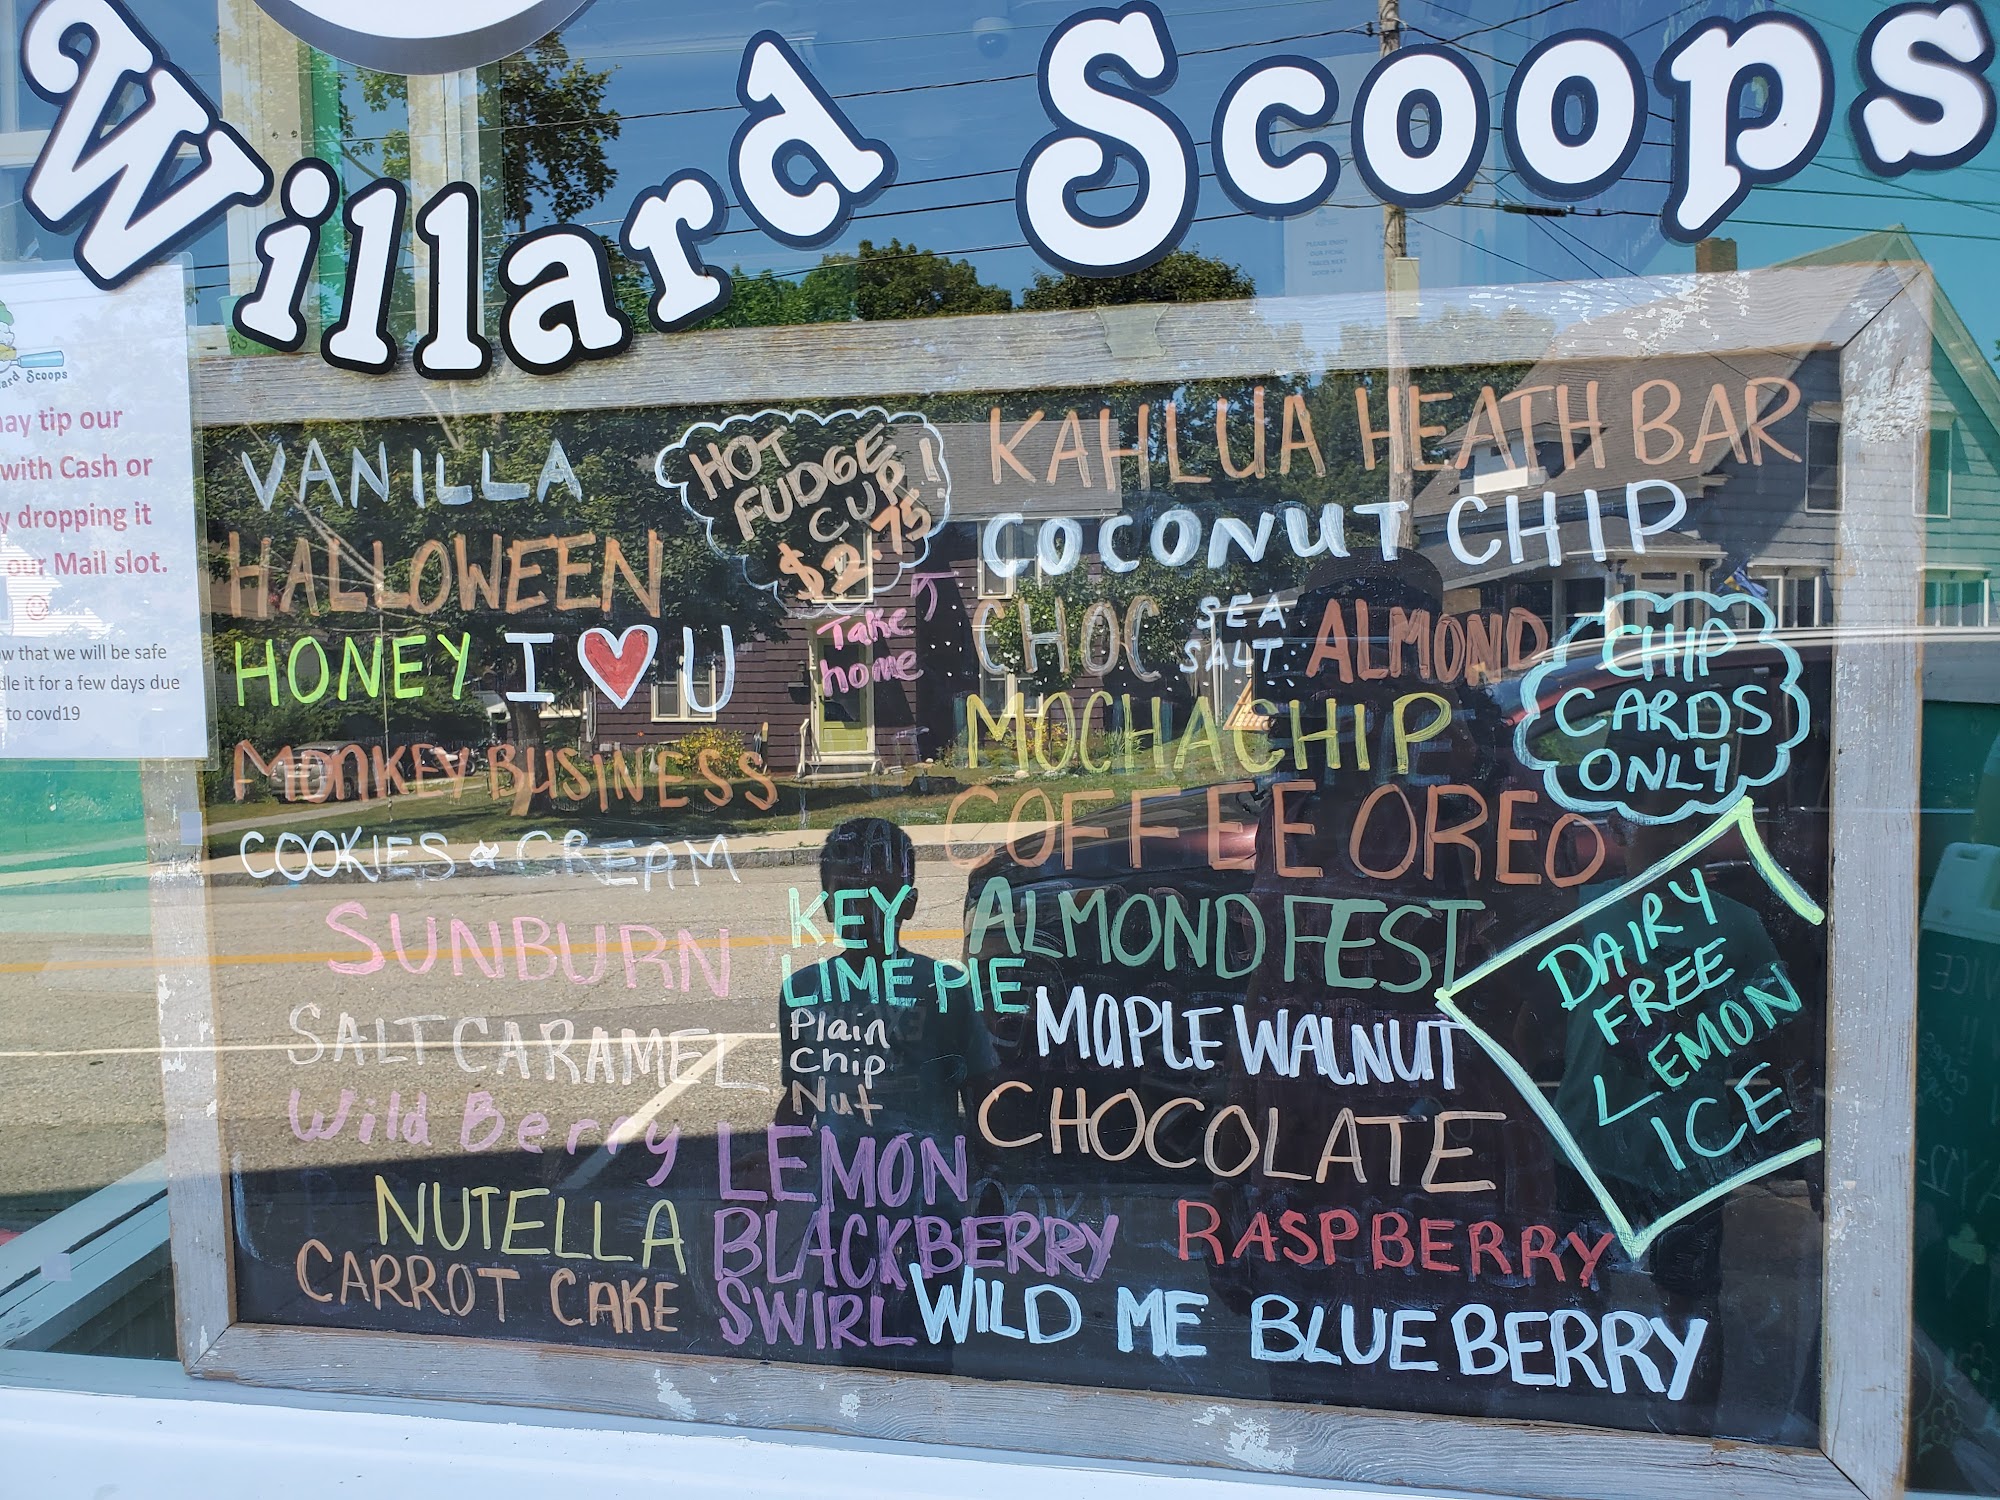 Willard Scoops
ard Scoops
ay tip our
with Cash or
y dropping it
our Mail slot.
w that we will be safe
dle it for a few days due
to covd19
VANILLA
HALLOWEEN
HONEY I ❤ U
MONKEY BUSINESS
COOKIES & CREAM
SUNBURN
SALT CARAMEL
Wild Berry
NUTELLA
CARROT CAKE
HOT
FUDGE
CUP!
$2.75
Take
home
KEY
LIME PIE
Plain
Chip
Nut
LEMON
BLACKBERRY
SWIRL
KAHLUA HEATH BAR
COCONUT CHIP
CHOC SEA SALT ALMOND
MOCHA CHIP
COFFEE OREO
ALMOND FEST
MAPLE WALNUT
CHOCOLATE
RASPBERRY
WILD ME BLUE BERRY
CHIP
CARDS
ONLY
DAIRY
FREE
LEMON
ICE